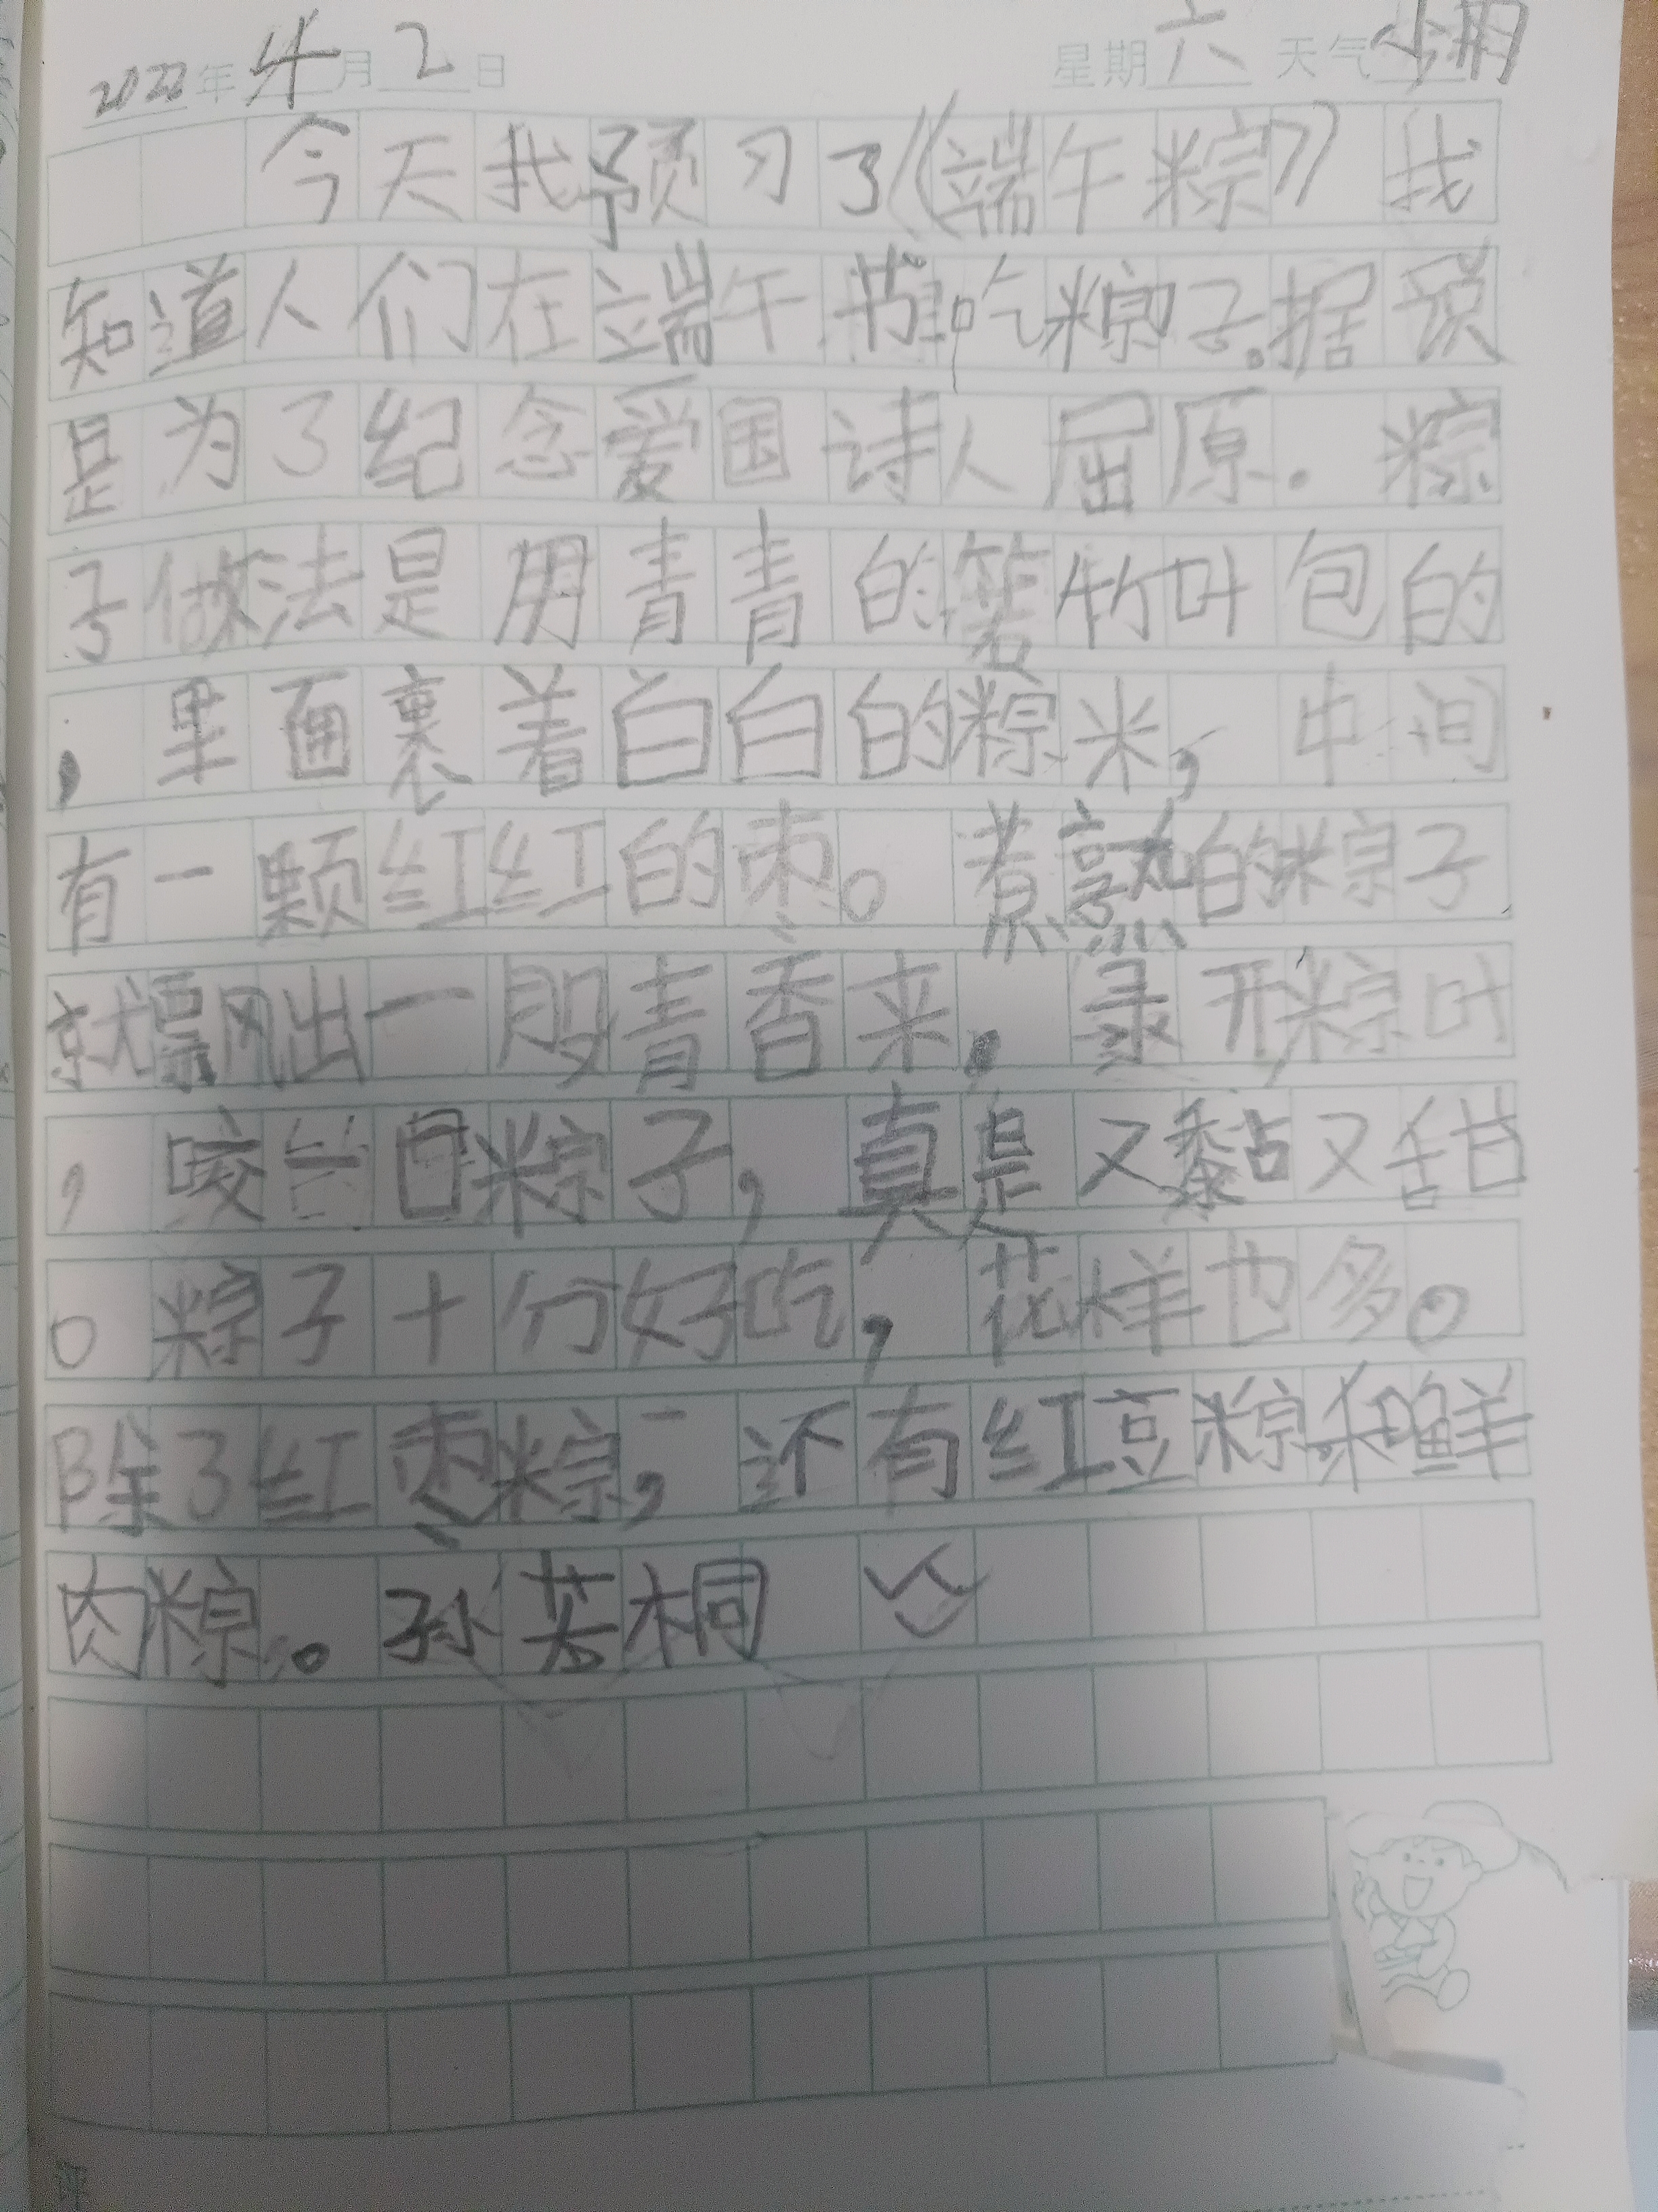 2022年4月2日 星期六 天气小雨
今天我预习了《端午粽》我
知道人们在端午节吃粽子。据说
是为了纪念爱国诗人屈原。粽
子做法是用青青的箬竹叶包的
，里面裹着白白的粽米，中间
有一颗红红的枣。煮熟的粽子
就飘出一股青香来，录开粽叶
，咬一口粽子，真是又黏又甜
。粽子十分好吃，花样也多。
除了红枣粽，还有红豆粽和鲜
肉粽。孙芸桐
评